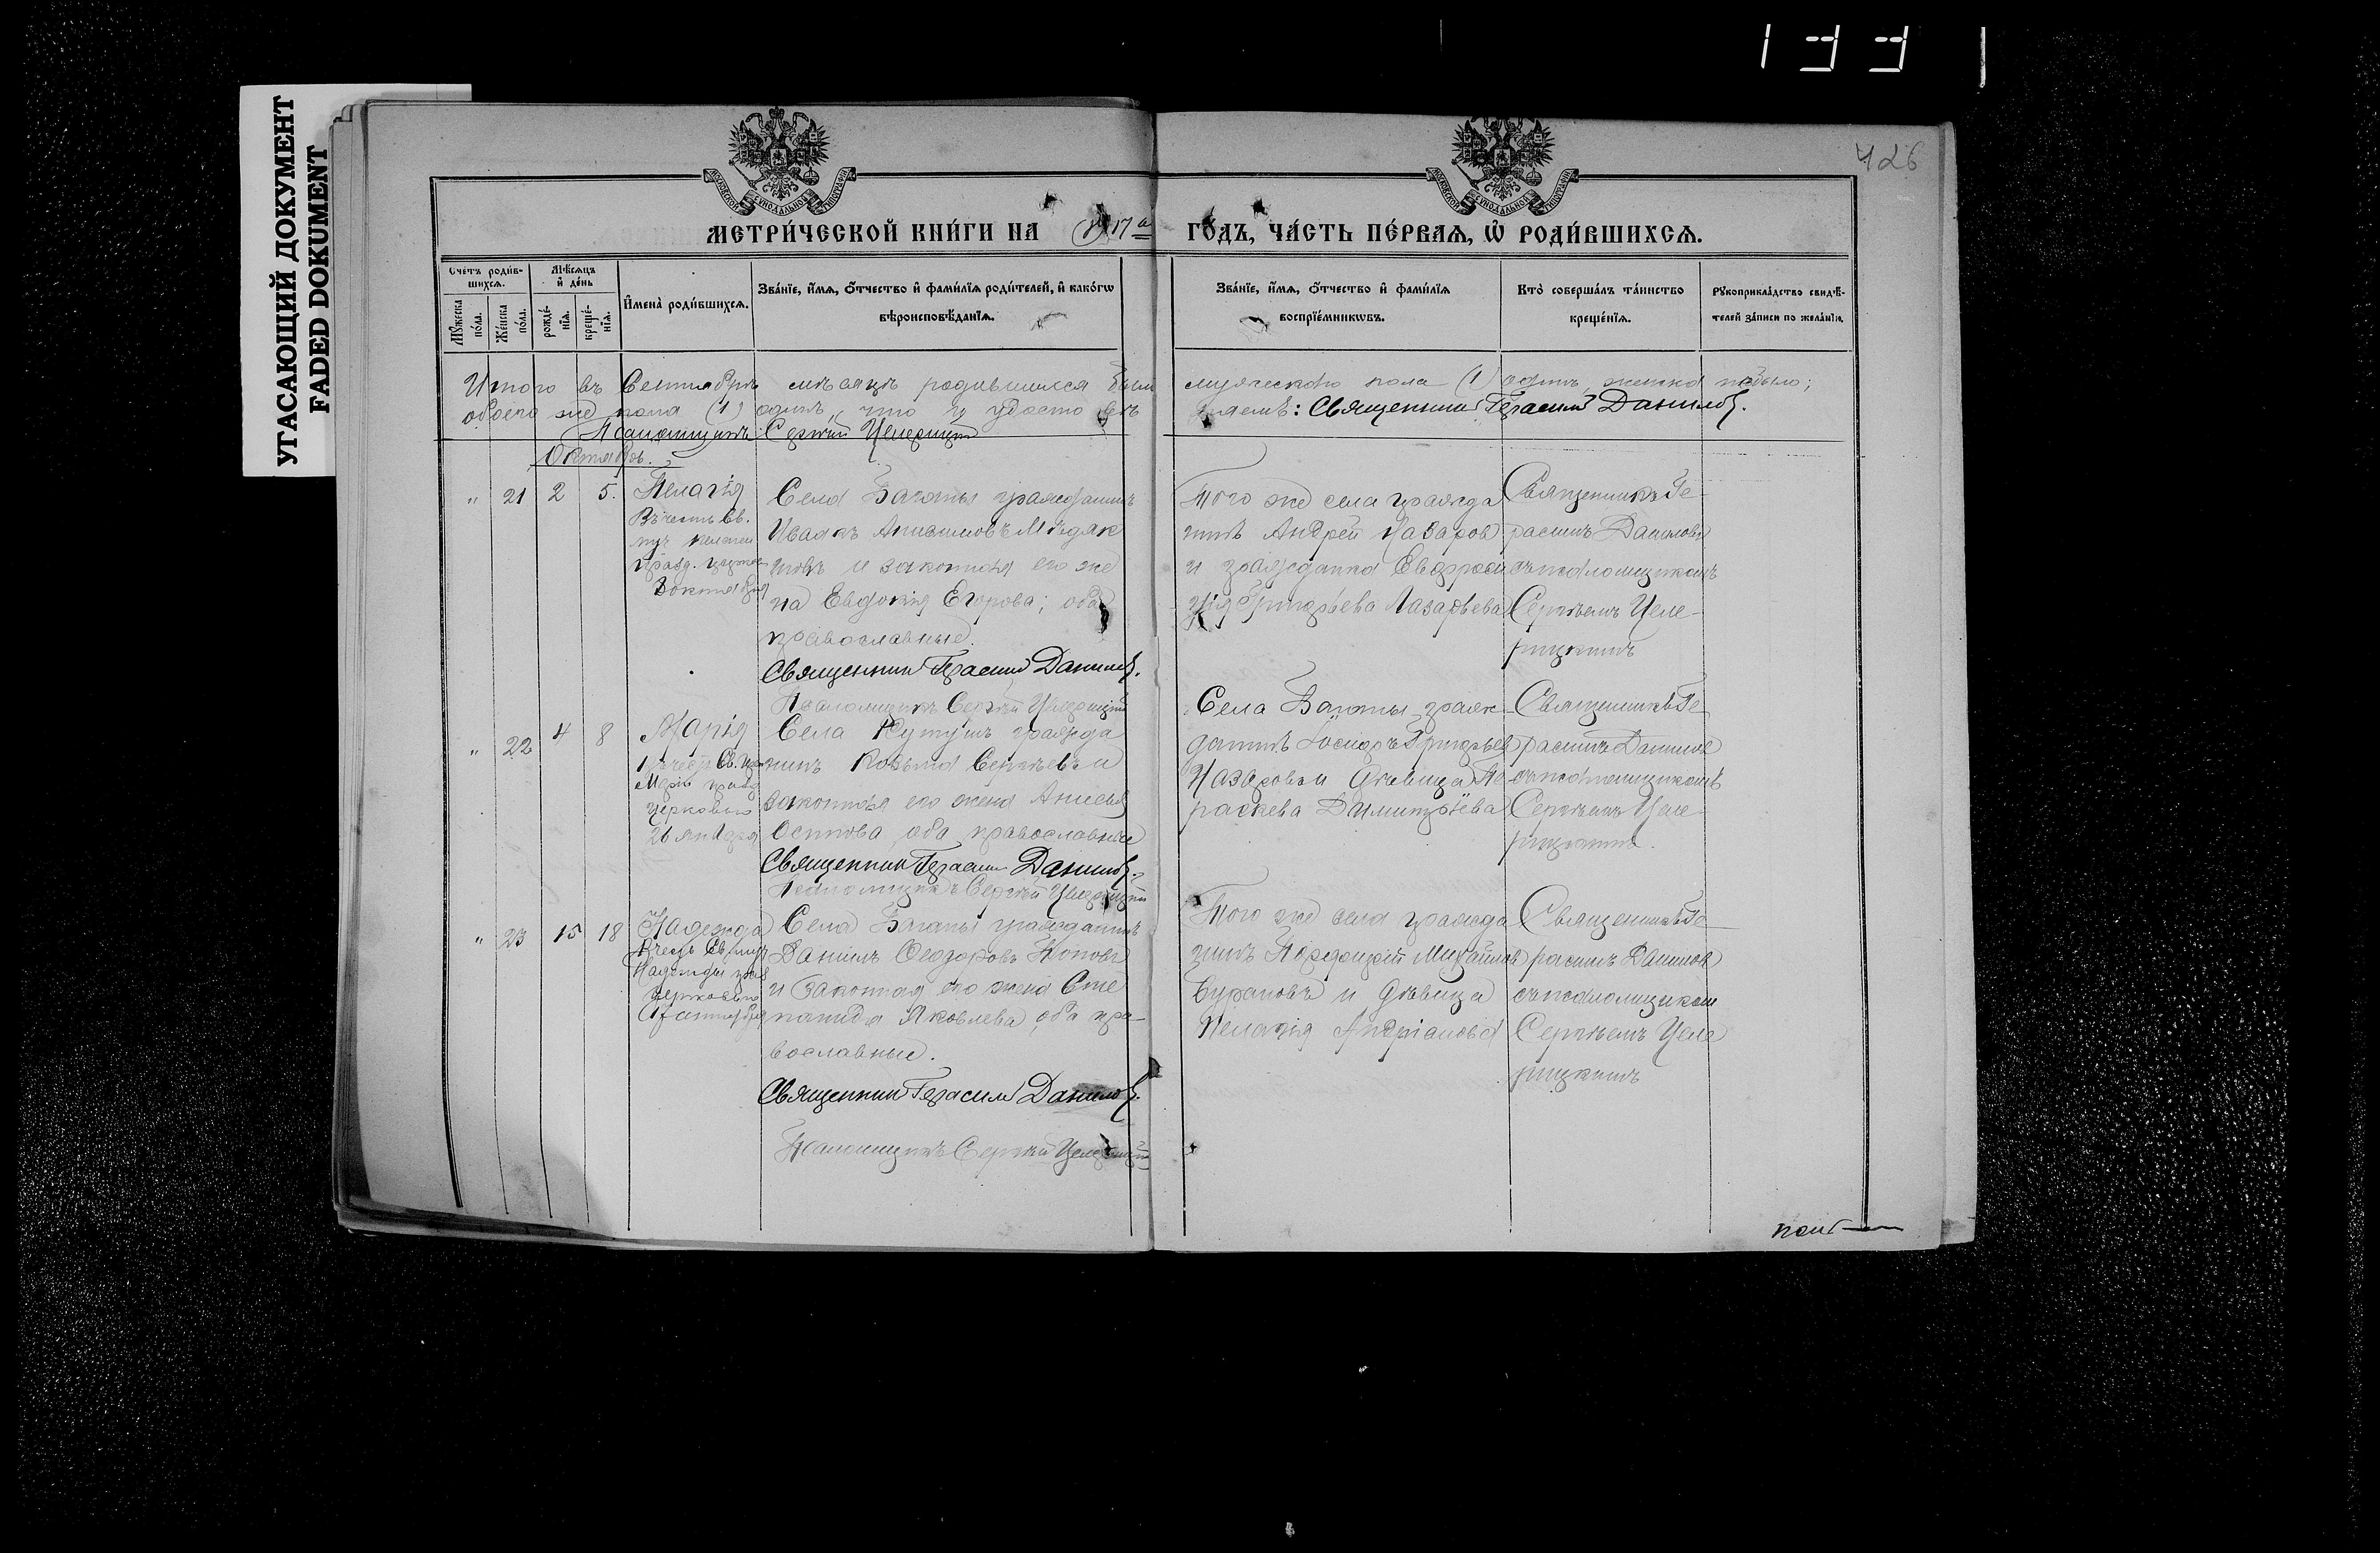 1331
УГАСАЮЩИЙ ДОКУМЕНТ
FADED DOKUMENT
426
МЕТРИ́ЧЕСКОЙ КНИ́ГИ НА 1917 ГО́ДЪ, ЧА́СТЬ ПЕ́РВАЯ, Ѡ҆ РОДИ́ВШИХСЯ.
Сче́тъ роди́вшихся.
Му́жеска по́ла.
Же́нска по́ла.
Мѣ́сяцъ и҆ де́нь
рожде́нїя.
креще́нїя.
И҆мена̀ роди́вшихся.
Зва́нїе, и҆́мя, ѻ҆́тчество и҆ фами́лїя роди́телей, и҆ како́гѡ
вѣроисповѣ́данїя.
Зва́нїе, и҆́мя, ѻ҆́тчество и҆ фами́лїя
воспрїе́мникѡвъ.
Кто̀ соверша́лъ та́инство
креще́нїя.
Рꙋкоприкла́дство свидѣ́-
телей за́писи по жела́нїю.
Итого въ Сентябрѣ мѣсяцѣ родившихся было мужескаго пола (1) одинъ, женска небыло;
обоего же пола (1) одинъ, что и удостовѣряемъ: Священникъ Герасимъ Даниловъ.
Псаломщикъ Сергѣй
Октябрь.
" 21 2 5. Пелагія
Въ честь Св.
муч. Пелагеи
празд. церков
октября
Села Багаты гражданинъ
Иванъ Анисимовъ
и законная его же
на Евдокія Егорова; оба
православные.
Священникъ Герасимъ Даниловъ.
Псаломщикъ Сергѣй
Того же села гражда
нинъ Андрей Назаров
и гражданка Евфроси
нія Григорьева Лазарева
Священникъ Ге-
расимъ Даниловъ
съ псаломщикомъ
Сергѣемъ Целе-
рицкимъ
" 22 4 8 Марія
въ честь Св.
Маріи празд
церковью
26 января
Села гражда
нинъ Козьма Сергѣевъ и
законная его жена
Осипова оба православные
Священникъ Герасимъ Даниловъ.
Псаломщикъ Сергѣй
Села Багаты граж
данинъ Григорьев
Назаровъ и дѣвица Па
раскева Димитріева
Священникъ Ге
расимъ Данилов
съ псаломщикомъ
Сергѣемъ Целе
рицкимъ.
" 23 15 18 Надежда
В честь Св. муч
Надежды празд
церковью
17 сентября
Села Багаты гражданинъ
Даніилъ Ѳеодоровъ Поповъ
и законная его жена Сте
панида Яковлева оба пра-
вославные.
Священникъ Герасимъ Даниловъ.
Псаломщикъ Сергѣй
Того же села гражда
нинъ Порфирій Михайлов
и дѣвица
Пелагія Андріанова
Священникъ Ге
расимъ Данилов
съ псаломщиком
Сергѣемъ Целе
рицкимъ